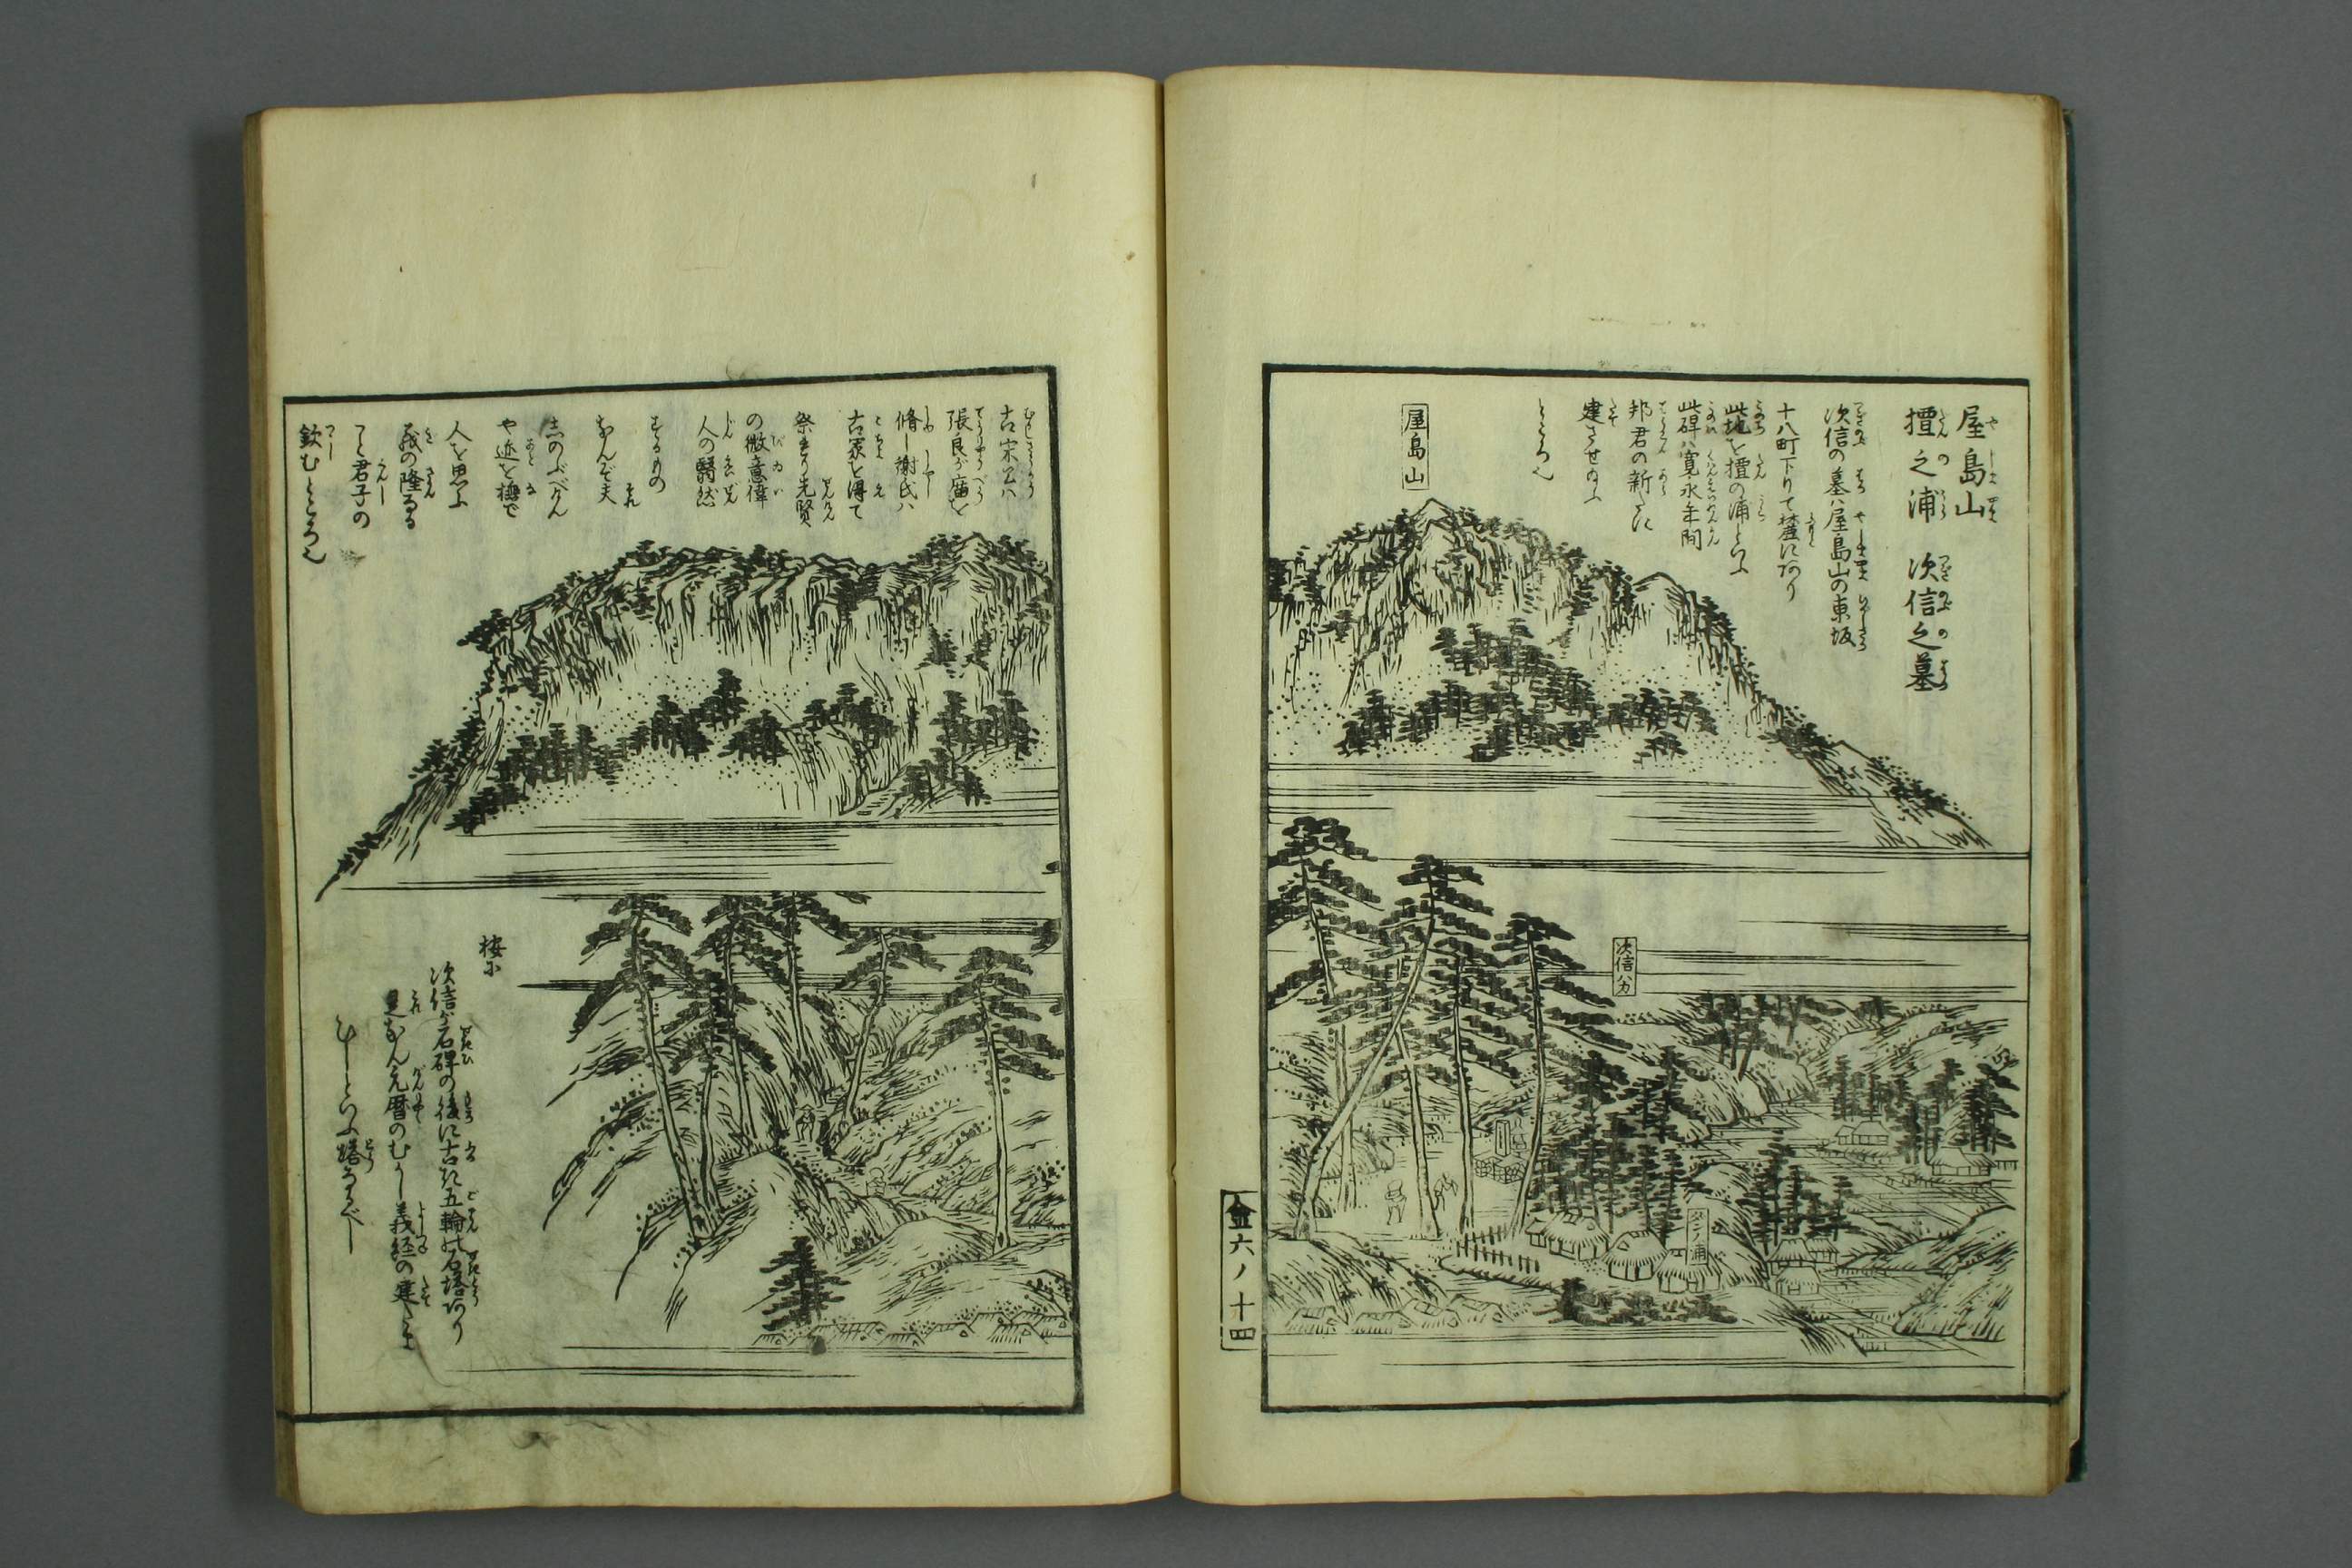 屋島山
擅之浦　次信之墓
次信の墓ハ屋島山の東坂
十八町下りて麓にあり
此地を擅の浦といふ
此碑ハ寛永年間
邦君の新たに
建させ給ふ
ところ也
屋島山
次信ハカ
ダンノ浦
金六ノ十四
古宋公ハ
張良が庙を
脩し謝氏ハ
古冢を得て
祭れり先賢
の微意偉
人の翳然
するもの
なんぞ夫
しのぶべけん
や迹を撫て
人を思ふ
義の隆なる
こと君子の
欽むところ也
按に
次信が石碑の後に古き五輪の石塔あり
是なん元暦のむかし義経の建たま
ひしといふ塔なるべし